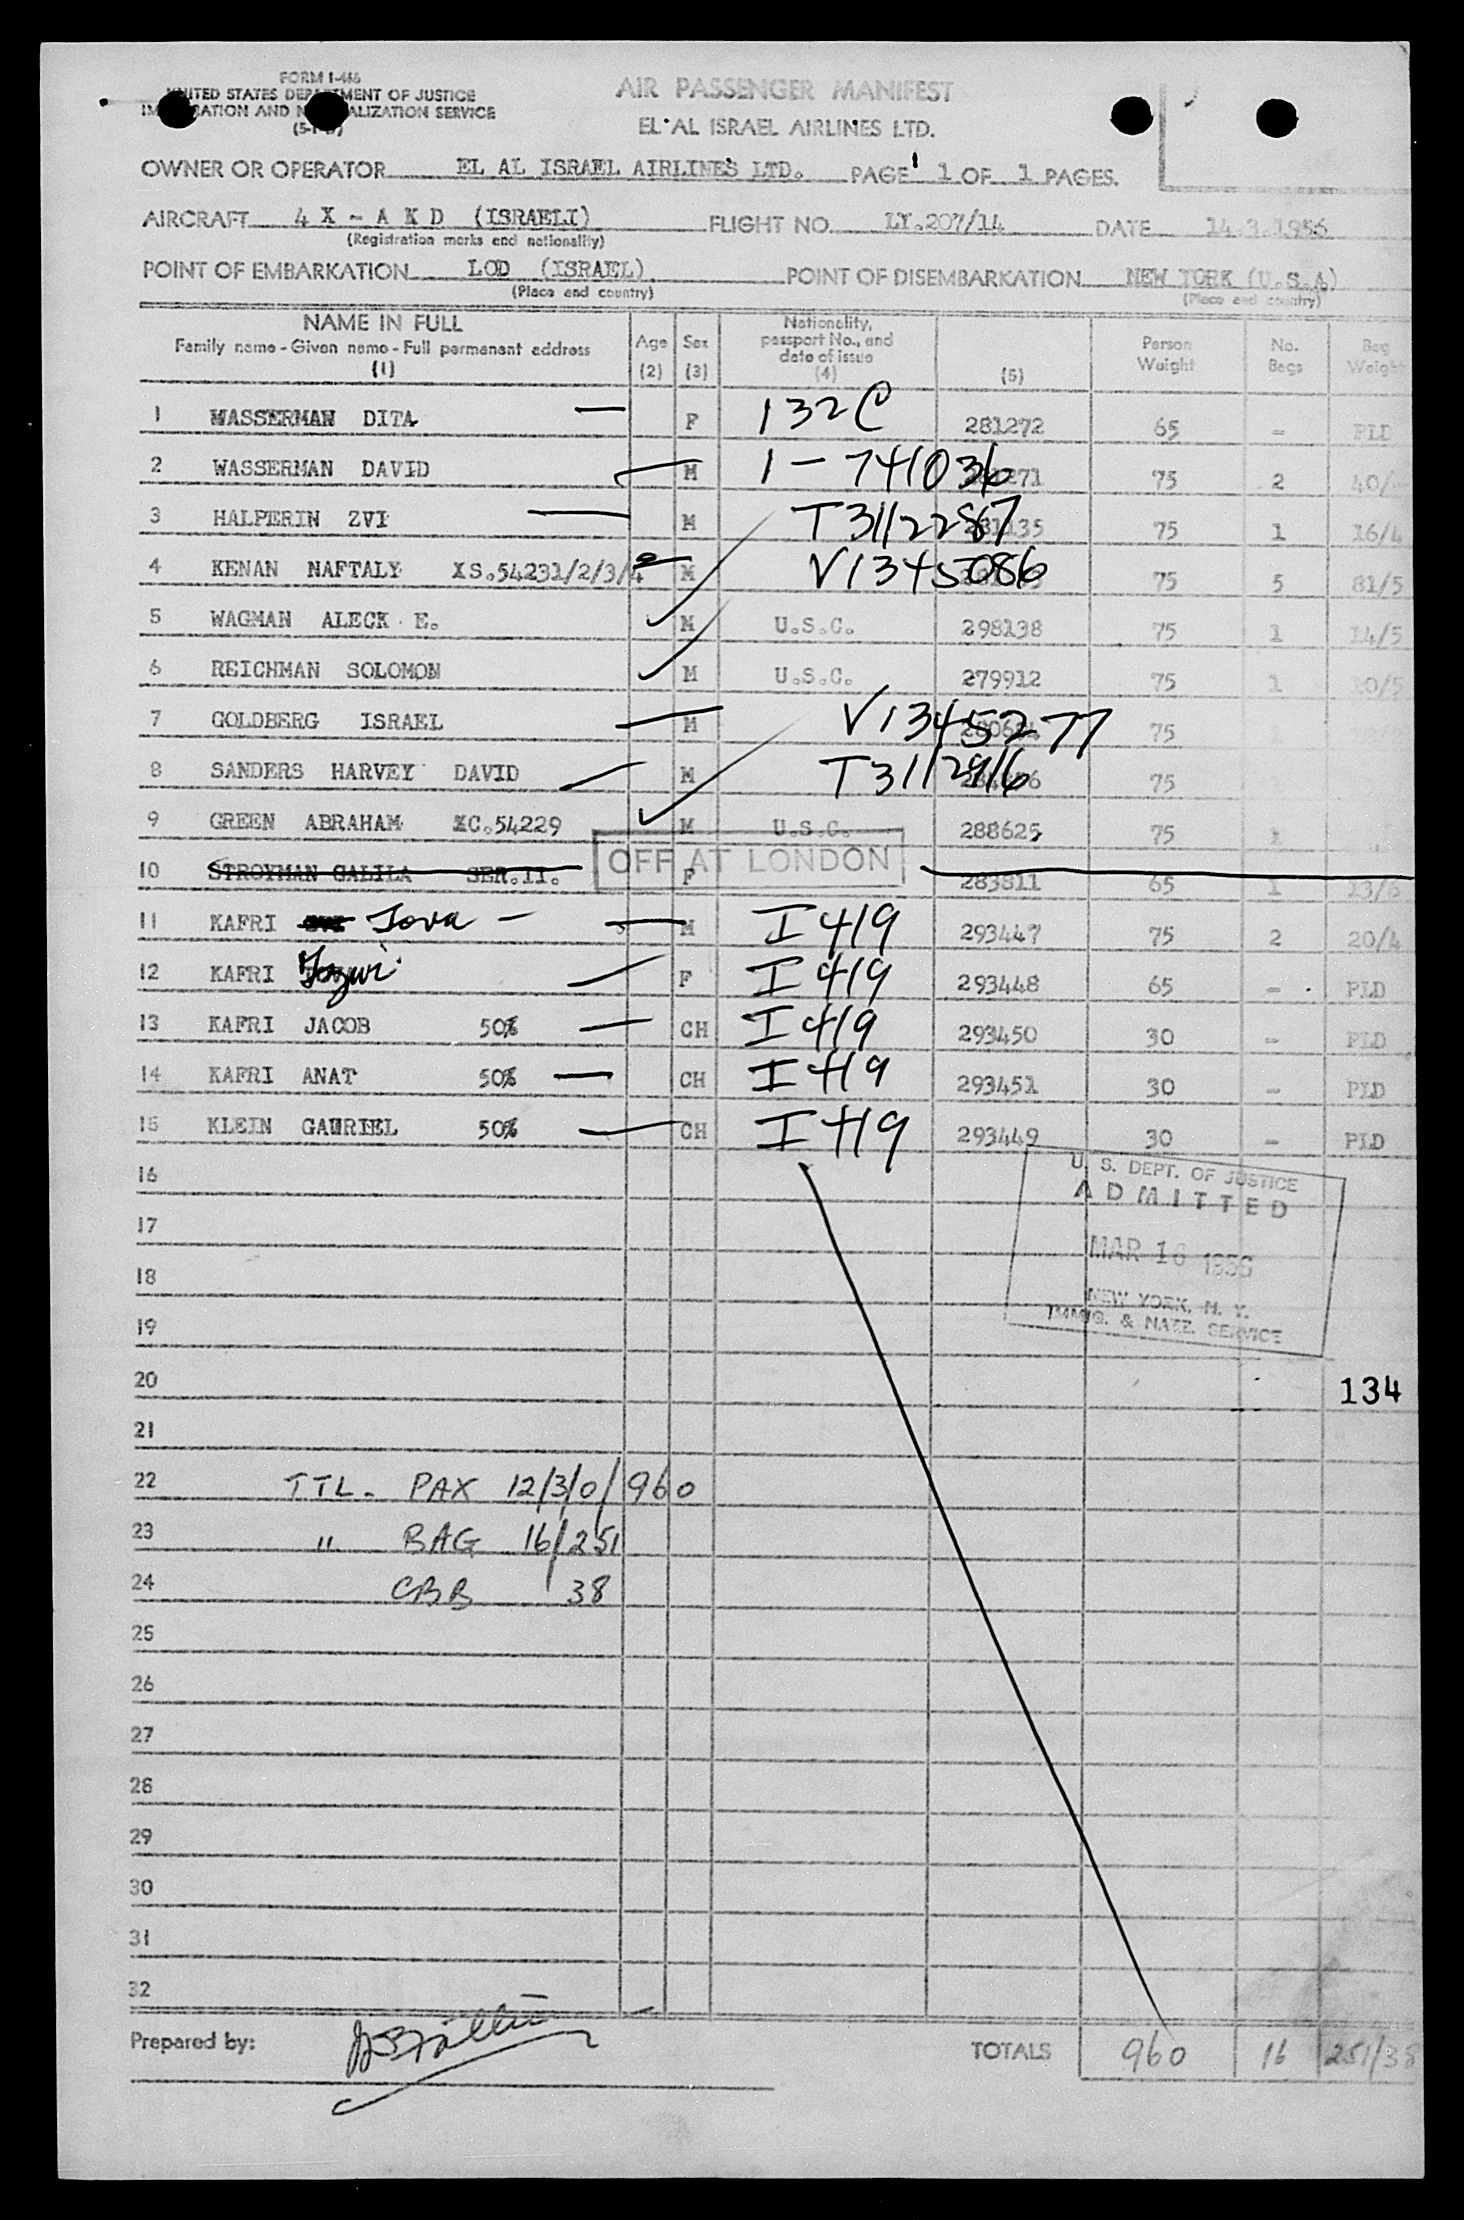 FORM I-466
UNITED STATES DEPARTMENT OF JUSTICE
IMMIGRATION AND NATURALIZATION SERVICE
AIR PASSENGER MANIFEST
EL AL ISRAEL AIRLINES LTD.
OWNER OR OPERATOR EL AL ISRAEL AIRLINES LTD. PAGE 1 OF 1 PAGES.
AIRCRAFT 4 X - A K D (ISRAELI) FLIGHT NO. LY.207/14 DATE 14.3.1956
(Registration marks and nationality)
POINT OF EMBARKATION LOD (ISRAEL) POINT OF DISEMBARKATION NEW YORK (U.S.A)
(Place and country) (Place and country)
NAME IN FULL Age Sex Nationality, passport No., and date of issue Person Weight No. Bags Bag Weight
Family name - Given name - Full permanent address
(1) (2) (3) (4) (5)
1 WASSERMAN DITA F 132C 281272 65 - PLD
2 WASSERMAN DAVID M 1-741036 75 2 40/
3 HALPERIN ZVI M T3112287 75 1 16/4
4 KENAN NAFTALY XS.54231/2/3/4 M V1345086 75 5 81/5
5 WAGMAN ALECK E. M U.S.C. 298138 75 1 14/5
6 REICHMAN SOLOMON M U.S.C. 279912 75 1 20/5
7 GOLDBERG ISRAEL M V1345277 75
8 SANDERS HARVEY DAVID M T3112916 75
9 GREEN ABRAHAM XC.54229 M U.S.C. 288625 75 1
10 STROYMAN GALILA SER.11. F OFF AT LONDON 283811 65 1 13/6
11 KAFRI Tova - M I 419 293447 75 2 20/4
12 KAFRI F I 419 293448 65 - PLD
13 KAFRI JACOB 50% CH I 419 293450 30 - PLD
14 KAFRI ANAT 50% CH I 419 293451 30 - PLD
15 KLEIN GAVRIEL 50% CH I 419 293449 30 - PLD
16
U. S. DEPT. OF JUSTICE
ADMITTED
17
MAR 16 1956
18
NEW YORK, N. Y.
IMMIG. & NATZ. SERVICE
19
20
134
21
22 TTL. PAX 12/3/0/960
23 " BAG 16/251
24 CBB 38
25
26
27
28
29
30
31
32
Prepared by: TOTALS 960 16 251/38